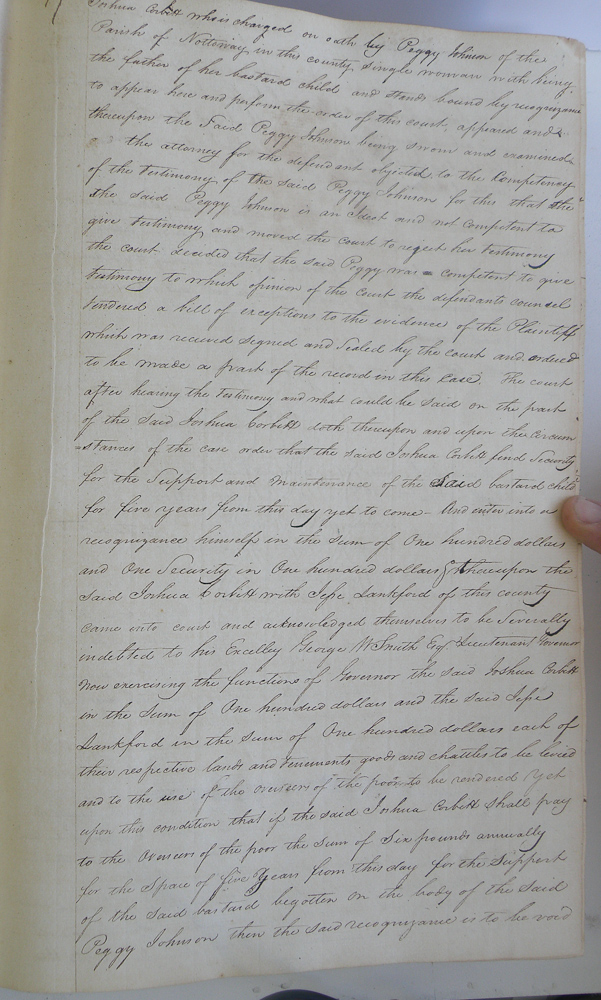 Joshua Corbitt who is charged on oath by Peggy Johnson of the
Parish of Nottoway in this county, single woman with being
the father of her bastard child and stands bound by recognizance
to appear here and perform the order of this court, appeared and &
thereupon the Said Peggy Johnson being sworn and examined
the attorney for the defendant objected to the Competency
of the testimony of the said Peggy Johnson for this that she
the said Peggy Johnson is an Ideot and not Competent to
give testimony and moved the Court to reject her testimony
the court decided that the said Peggy was competent to give
testimony to which opinion of the Court the defendants counsel
tendered a bill of exceptions to the evidence of the Plaintiff
which was received signed and Sealed by the court and ordered
to be made a part of the record in this case. The court
after hearing the testimony and what could be said on the part
of the Said Joshua Corbitt doth thereupon and upon the circum
stances of the case order that the said Joshua Corbitt find Security
for the Support and maintenance of the Said bastard child
for five years from this day yet to come - And enter into a
recognizance himself in the Sum of One hundred dollars
and One Security in One hundred dollars & thereupon the
Said Joshua Corbitt with Jesse Lankford of this county
came into court and acknowledged themselves to be Severally
indebted to his Excelley George W Smith Esq Lieutenant Governor
now exercising the functions of Governor the said Joshua Corbitt
in the Sum of One hundred dollars and the said Jesse
Lankford in the Sum of One hundred dollars each of
their respective lands and tenements goods and chattles to be levied
and to the use of the overseers of the poor to be rendered yet
upon this condition that if the said Joshua Corbitt Shall pay
to the Overseers of the poor the Sum of Six pounds annually
for the Space of five Years from this day for the Support
of the Said bastard begotten on the body of the Said
Peggy Johnson then the Said recognizance is to be void